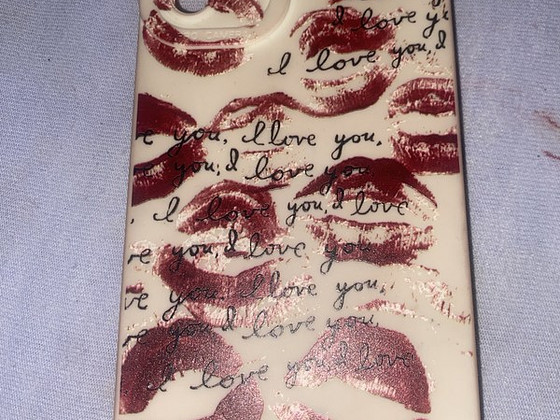 I love yo
I love you, I
e you, I love you,
you, I love you
, I love you, I love
ve you, I love you
ve you, I love you,
re you, I love you,
I love you, I love